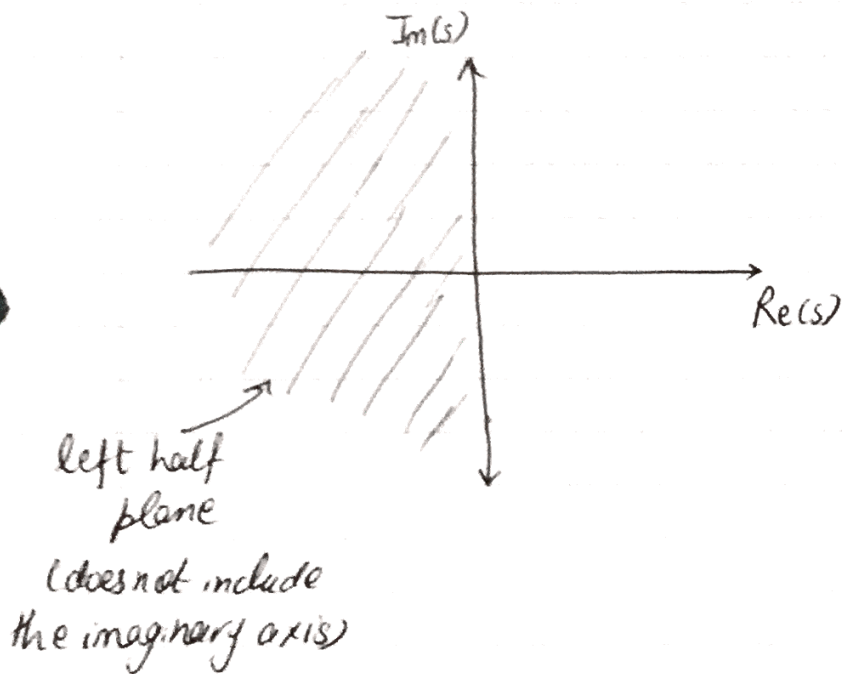 Im(s)
Re(s)
left half
plane
(does not include
the imaginary axis)